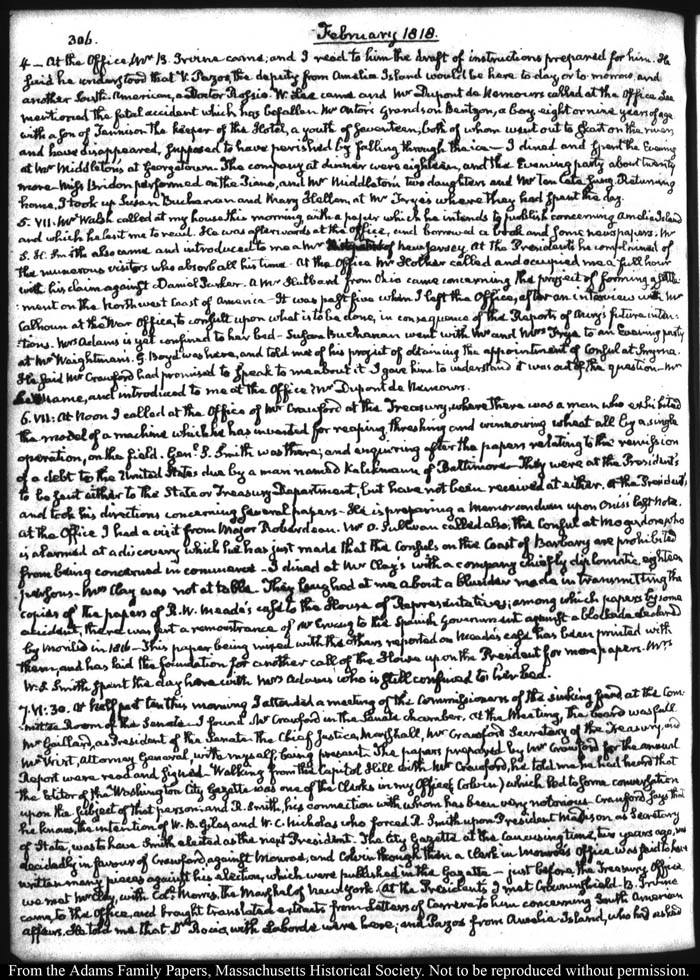 306.
February 1818.
4 — At the Office, Mr B. Irvine came; and I read to him the draft of instructions prepared for him. He
said he understood that V. Pazos, the deputy from Amelia Island would be here to day or to morrow, and
another South-American, a Doctor Roscio. W. Lee came and Mr Dupont de Nemours called at the Office. Lee
mentioned the fatal accident which has befallen Mr Astor's Grandson Bentzon, a boy eight or nine years of age
with a son of Tennison the keeper of the Hotel, a youth of seventeen, both of whom went out to skait on the river
and have disappeared, supposed to have perished by falling through the ice — I dined and spent the Evening
at Mr Middleton's at Georgetown. The company at dinner were eighteen, and the Evening party about twenty
more. Miss Bridon performed on the Piano, and Mr Middleton's two daughters and Mr Ten Cate sung. Returning
home, I took up Susan Buchanan and Mary Hellen, at Mr Frye's where they had spent the day.
5. VII. Mr Walsh called at my house this morning with a paper which he intends to publish concerning Amelia Island
and which he left me to read. He was afterwards at the Office, and borrowed a book and some newspapers. Mr
S. H. Smith also came and introduced to me a Mr of New Jersey. At the President's he complained of
the numerous visitors who absorb all his time. At the Office Mr Hother called and occupied me a full hour
with his claim against Daniel Parker. A Mr Hulbard from Ohio came concerning the project of forming a settle-
ment on the North west Coast of America — It was past five when I left the Office, after an interview with Mr
Calhoun at the War Office, to consult upon what is to be done, in consequence of the Reports of Aury's future inten-
tions. Mrs Adams is yet confined to her bed — Susan Buchanan went with Mr and Mrs Frye to an Evening party
at Mr Weightman's. G. Boyd was here, and told me of his project of obtaining the appointment of Consul at Smyrna.
He said Mr Crawford had promised to speak to me about it. I gave him to understand it was out of the question — Mr
came, and introduced to me at the Office Mr Dupont de Nemours.
6. VII: At Noon I called at the Office of Mr Crawford at the Treasury, where there was a man who exhibited
the model of a machine which he has invented for reaping, threshing and winnowing wheat all by a single
operation, on the field. Genl. S. Smith was there; and enquiring after the papers relating to the remission
of a debt to the United States due by a man named Kalckmann of Baltimore — They were at the President's
to be sent either to the State or Treasury Department, but have not been received at either. At the President's
and took his directions concerning several papers — He is preparing a Memorandum upon Onis's last Note.
at the Office I had a visit from Major Roberdeau. Mr O. Sullivan called also; the Consul at Mogadore who
is alarmed at a discovery which he has just made that the Consuls on the Coast of Barbary are prohibited
from being concerned in commerce — I dined at Mr Clay's with a company chiefly diplomatic, eighteen
persons — Mrs Clay was not at table. They laughed at me about a blunder made in transmitting the
copies of the papers of R. W. Meade's case to the House of Representatives; among which papers by some
accident, there was put a remonstrance of Mr Erving to the Spanish Government against a blockade declared
by Morillo in 1816 — This paper being mixed with the others reported on Meade's case has been printed with
them, and has laid the foundation for another call of the House upon the President for more papers. Mrs
W. S. Smith spent the day here with Mrs Adams who is still confined to her bed.
7. VI: 30. At half past ten this morning I attended a meeting of the Commissioners of the sinking fund, at the Com-
mittee Room of the Senate. I found Mr Crawford in the Senate chamber. At the Meeting, the board was full
Mr Gaillard, as President of the Senate, the Chief Justice, Marshall, Mr Crawford Secretary of the Treasury, and
Mr Wirt, Attorney General, with myself, being present. The papers prepared by Mr Crawford for the annual
Report were read and signed. Walking from the Capitol Hill with Mr Crawford, he told me he had heard that
the Editor of the Washington City Gazette was one of the Clerks in my Office (Colvin) which led to some conversation
upon the subject of that person; and R. Smith, his connection with whom has been very notorious. Crawford says that
he knows, the intention of W. B. Giles, and W. C. Nicholas who forced R. Smith upon President Madison as Secretary
of State, was to have Smith elected as the next President. The City Gazette at the Caucusing time, two years ago, was
decidedly in favour of Crawford, against Monroe, and Colvin though then a Clerk in Monroe's Office was said to have
written many pieces against his election, which were published in the Gazette — just before the Treasury Office
we met Mr Clay, with Col. Morris, the Marshal of New York. At the President's I met Crowninshield. B. Irvine
came to the Office, and brought translated extracts from Letters of Carrera to him concerning South American
affairs. He told me that Dr Rocio, with Laborde were here; and Pazos from Amelia Island, who had asked
From the Adams Family Papers, Massachusetts Historical Society. Not to be reproduced without permission.